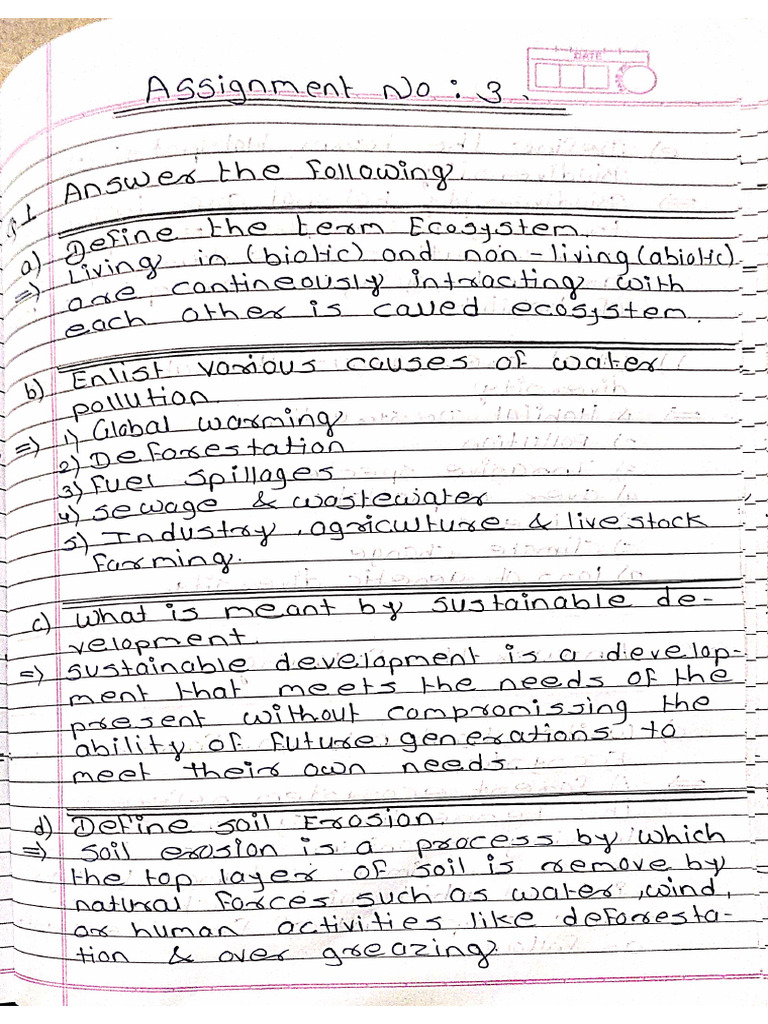 DATE
Assignment No : 3.
Q.1 Answer the following.
a) Define the term Ecosystem.
=> Living in (biotic) and non-living (abiotic)
are contineously intracting with
each other is called ecosystem.
b) Enlist various causes of water
pollution.
=> 1) Global warming
2) Deforestation
3) Fuel spillages
4) sewage & wastewater
5) Industry, agriculture & livestock
farming.
c) What is meant by sustainable de-
velopment.
=> sustainable development is a develop-
ment that meets the needs of the
present without compromissing the
ability of future, generations to
meet their own needs.
d) Define soil Erosion.
=> soil erosion is a process by which
the top layer of soil is remove by
natural forces such as water, wind,
or human activities like deforesta-
tion & over greazing.